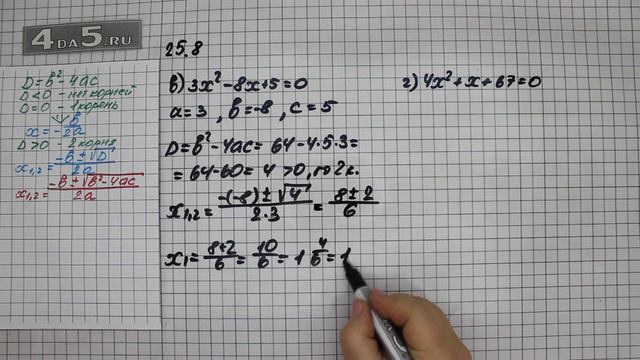 4DA5.RU
D=b²-4ac
D<0 - нет корней
D=0 - 1 корень
x=-b/2a
D>0 - 2 корня
x₁,₂=(-b±√D)/2a
x₁,₂=(-b±√b²-4ac)/2a
25.8
в) 3x²-8x+5=0
a=3, b=-8, c=5
D=b²-4ac=64-4·5·3=
=64-60=4>0, то 2к.
x₁,₂=(-(-8)±√4)/2·3=(8±2)/6
x₁=(8+2)/6=10/6=1 4/6=1
г) 4x²+x+67=0